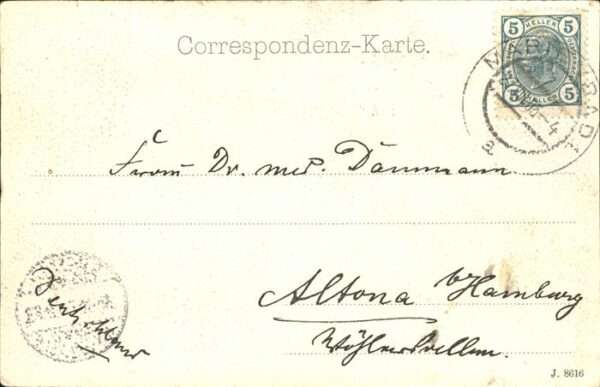 5 HELLER 5
5 HELLER 5
Correspondenz-Karte.
Frau Dr. med. Dammann.
Altona b/Hamburg
Deutschland
J. 8616